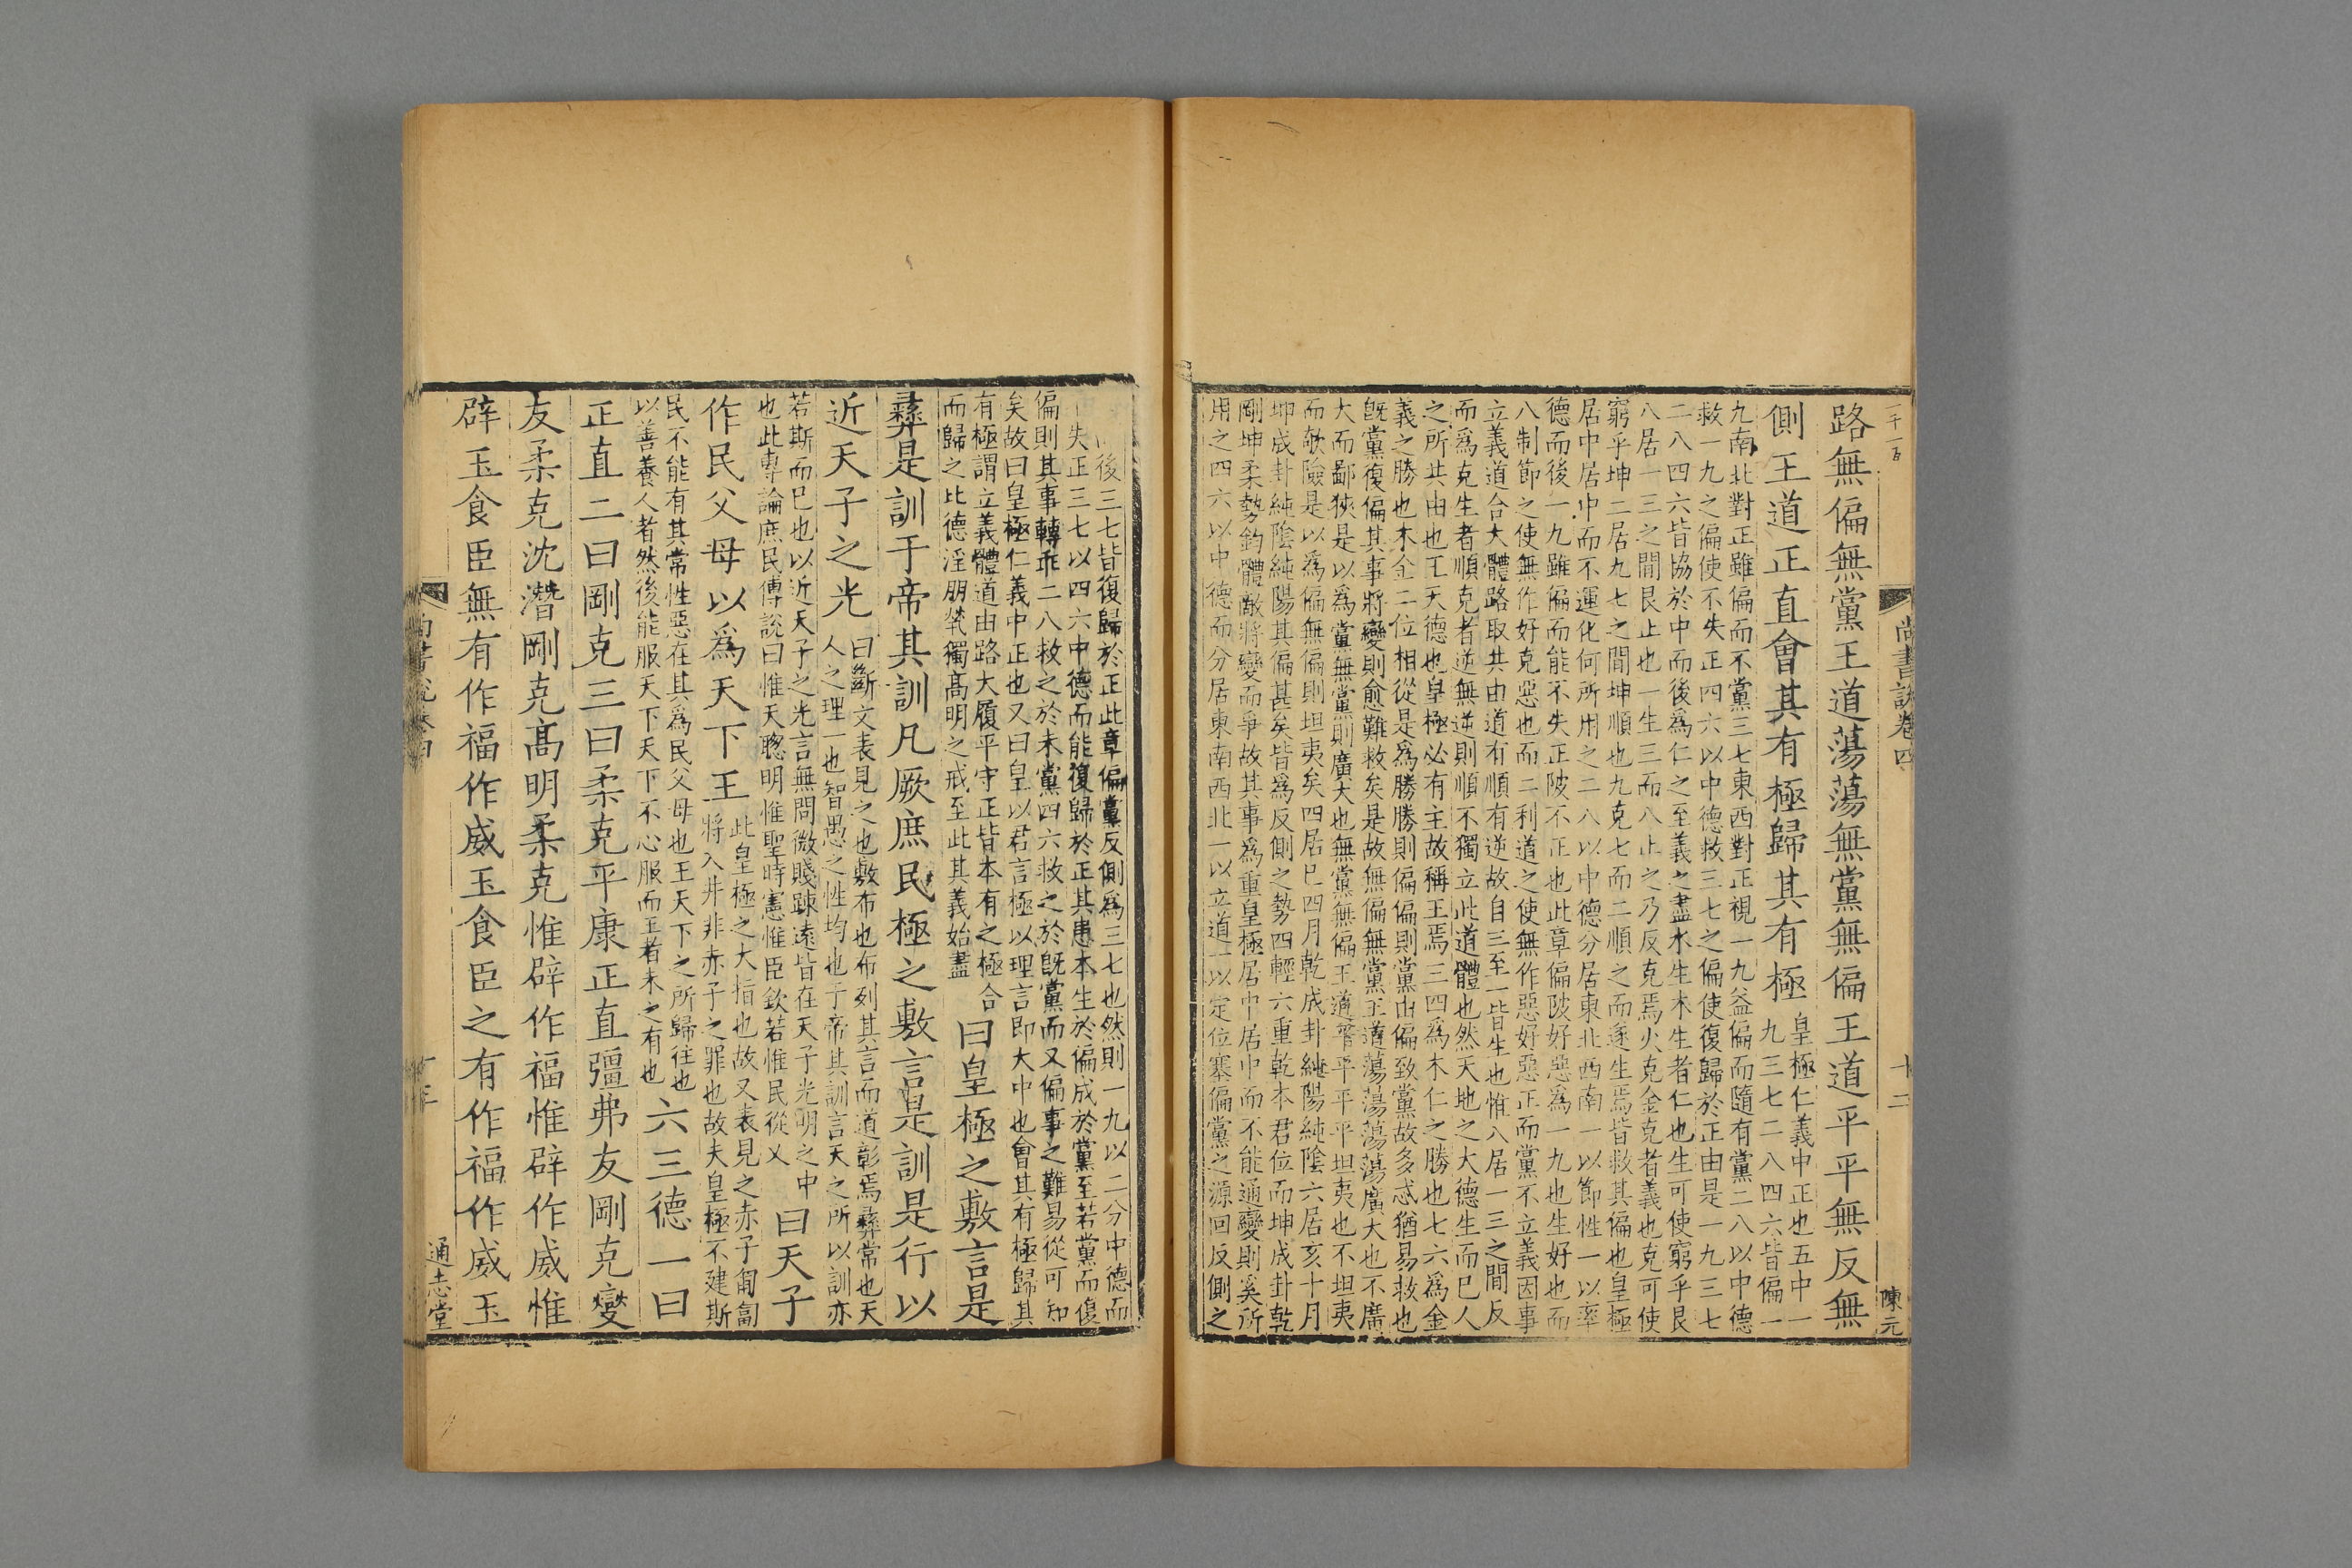 一千一百
尚書說卷四
十二
陳元
路無偏無黨王道蕩蕩無黨無偏王道平平無反無
側王道正直會其有極歸其有極
皇極仁義中正也五中一
九三七二八四六皆偏一
九南北對正雖偏而不黨三七東西對正視一九益偏而隨有黨二八以中德
救一九之偏使不失正四六以中德救三七之偏使復歸於正由是一九三七
二八四六皆協於中而後為仁之至義之盡水生木生者仁也生可使窮乎艮
八居一三之間艮止也一生三而八止之乃反克焉火克金克者義也克可使
窮乎坤二居九七之間坤順也九克七而二順之而遂生焉皆救其偏也皇極
居中居中而不運化何所用之二八以中德分居東北西南一以節性一以率
德而後一九雖偏而能不失正陂不正也此章偏陂好惡為一九也生好也而
八制節之使無作好克惡也而二利道之使無作惡好惡正而黨不立義因事
立義道合大體路取其由道有順有逆故自三至一皆生也惟八居一三之間反
而為克生者順克者逆無逆則順不獨立此道體也然天地之大德生而已人
之所共由也王天德也皇極必有主故稱王焉三四為木仁之勝也七六為金
義之勝也木金二位相從是為勝勝則偏偏則黨由偏致黨故多忒猶易救也
既黨復偏其事將變則愈難救矣是故無偏無黨王道蕩蕩蕩蕩廣大也不廣
大而鄙狹是以為黨無黨則廣大也無黨無偏王道平平平平坦夷也不坦夷
而欹險是以為偏無偏則坦夷矣四居巳四月乾成卦純陽純陰六居亥十月
坤成卦純陰純陽其偏甚矣皆為反側之勢四輕六重乾本君位而坤成卦乾
剛坤柔勢鈞體敵將變而爭故其事為重皇極居中居中而不能通變則奚所
用之四六以中德而分居東南西北一以立道一以定位塞偏黨之源回反側之
後三七皆復歸於正此章偏黨反側為三七也然則一九以二分中德而
失正三七以四六中德而能復歸於正其患本生於偏成於黨至若黨而復
偏則其事轉乖二八救之於未黨四六救之於既黨而又偏事之難易從可知
矣故曰皇極仁義中正也又曰皇以君言極以理言即大中也會其有極歸其
有極謂立義體道由路大履平守正皆本有之極合
而歸之比德淫朋煢獨高明之戒至此其義始盡
曰皇極之敷言是
彝是訓于帝其訓凡厥庶民極之敷言是訓是行以
近天子之光
曰斷文表見之也敷布也布列其言而道彰焉彝常也天
人之理一也智愚之性均也于帝其訓言天之所以訓亦
若斯而已也以近天子之光言無問微賤踈遠皆在天子光明之中
也此專論庶民傅說曰惟天聰明惟聖時憲惟臣欽若惟民從乂
曰天子
作民父母以為天下王
此皇極之大指也故又表見之赤子匍匐
將入井非赤子之罪也故夫皇極不建斯
民不能有其常性惡在其為民父母也王天下之所歸往也
以善養人者然後能服天下天下不心服而王者未之有也
六三德一曰
正直二曰剛克三曰柔克平康正直彊弗友剛克燮
友柔克沈潛剛克高明柔克惟辟作福惟辟作威惟
辟玉食臣無有作福作威玉食臣之有作福作威玉
通志堂